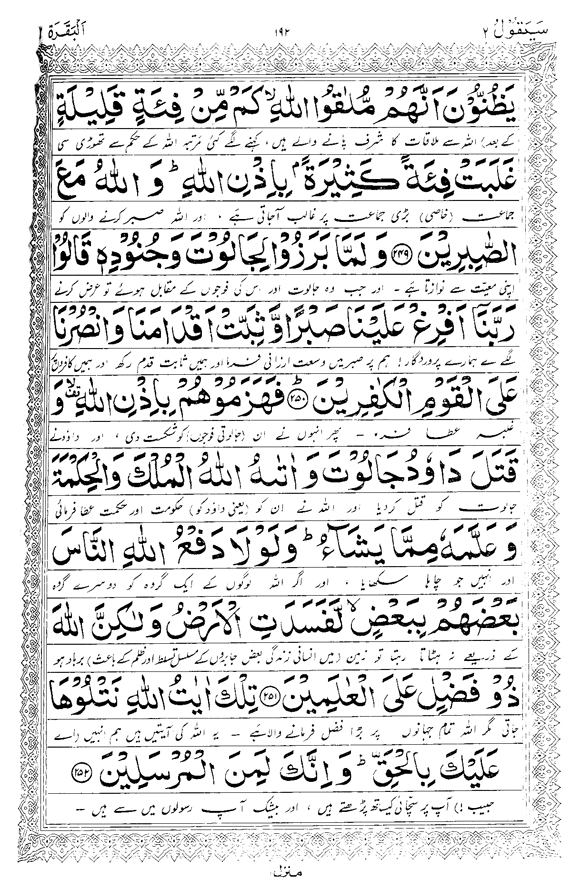 سَيَقُوْلُ ٢ ١٩٢ اَلْبَقَرَة
يَظُنُّوْنَ اَنَّهُمْ مُّلٰقُوا اللّٰهِ ۙ كَمْ مِّنْ فِئَةٍ قَلِيْلَةٍ
کے بعد) اللہ سے ملاقات کا شرف پانے والے ہیں، کہنے لگے کئی مرتبہ اللہ کے حکم سے تھوڑی سی
غَلَبَتْ فِئَةً كَثِيْرَةًۢ بِاِذْنِ اللّٰهِ ؕ وَ اللّٰهُ مَعَ
جماعت (خاصی) بڑی جماعت پر غالب آجاتی ہے، اور اللہ صبر کرنے والوں کو
الصّٰبِرِيْنَ ﴿٢٤٩﴾ وَ لَمَّا بَرَزُوْا لِجَالُوْتَ وَ جُنُوْدِهٖ قَالُوْا
اپنی معیت سے نوازتا ہے۔ اور جب وہ جالوت اور اس کی فوجوں کے مقابل ہوئے تو عرض کرنے
رَبَّنَاۤ اَفْرِغْ عَلَيْنَا صَبْرًا وَّ ثَبِّتْ اَقْدَامَنَا وَ انْصُرْنَا
لگے اے ہمارے پروردگار! ہم پر صبر میں وسعت ارزانی فرما اور ہمیں ثابت قدم رکھ اور ہمیں کافروں پر
عَلَى الْقَوْمِ الْكٰفِرِيْنَ ؕ﴿٢٥٠﴾ فَهَزَمُوْهُمْ بِاِذْنِ اللّٰهِ ۙ۫ وَ
غلبہ عطا فرما۔ پھر انہوں نے ان (جالوتی فوجوں) کو شکست دی، اور داؤد نے
قَتَلَ دَاوٗدُ جَالُوْتَ وَ اٰتٰىهُ اللّٰهُ الْمُلْكَ وَ الْحِكْمَةَ
جالوت کو قتل کر دیا اور اللہ نے ان کو (یعنی داؤد کو) حکومت اور حکمت عطا فرمائی
وَ عَلَّمَهٗ مِمَّا يَشَآءُ ؕ وَ لَوْ لَا دَفْعُ اللّٰهِ النَّاسَ
اور انہیں جو چاہا سکھایا، اور اگر اللہ لوگوں کے ایک گروہ کو دوسرے گروہ
بَعْضَهُمْ بِبَعْضٍ ۙ لَّفَسَدَتِ الْاَرْضُ وَ لٰكِنَّ اللّٰهَ
کے ذریعے نہ ہٹاتا رہتا تو زمین (میں انسانی زندگی بعض جابروں کے مسلسل تسلط اور ظلم کے باعث) برباد ہو
ذُوْ فَضْلٍ عَلَى الْعٰلَمِيْنَ ﴿٢٥١﴾ تِلْكَ اٰيٰتُ اللّٰهِ نَتْلُوْهَا
جاتی مگر اللہ تمام جہانوں پر بڑا فضل فرمانے والا ہے۔ یہ اللہ کی آیتیں ہیں ہم انہیں (اے
عَلَيْكَ بِالْحَقِّ ؕ وَ اِنَّكَ لَمِنَ الْمُرْسَلِيْنَ ﴿٢٥٢﴾
حبیب!) آپ پر سچائی کے ساتھ پڑھتے ہیں، اور بیشک آپ رسولوں میں سے ہیں۔
منزل